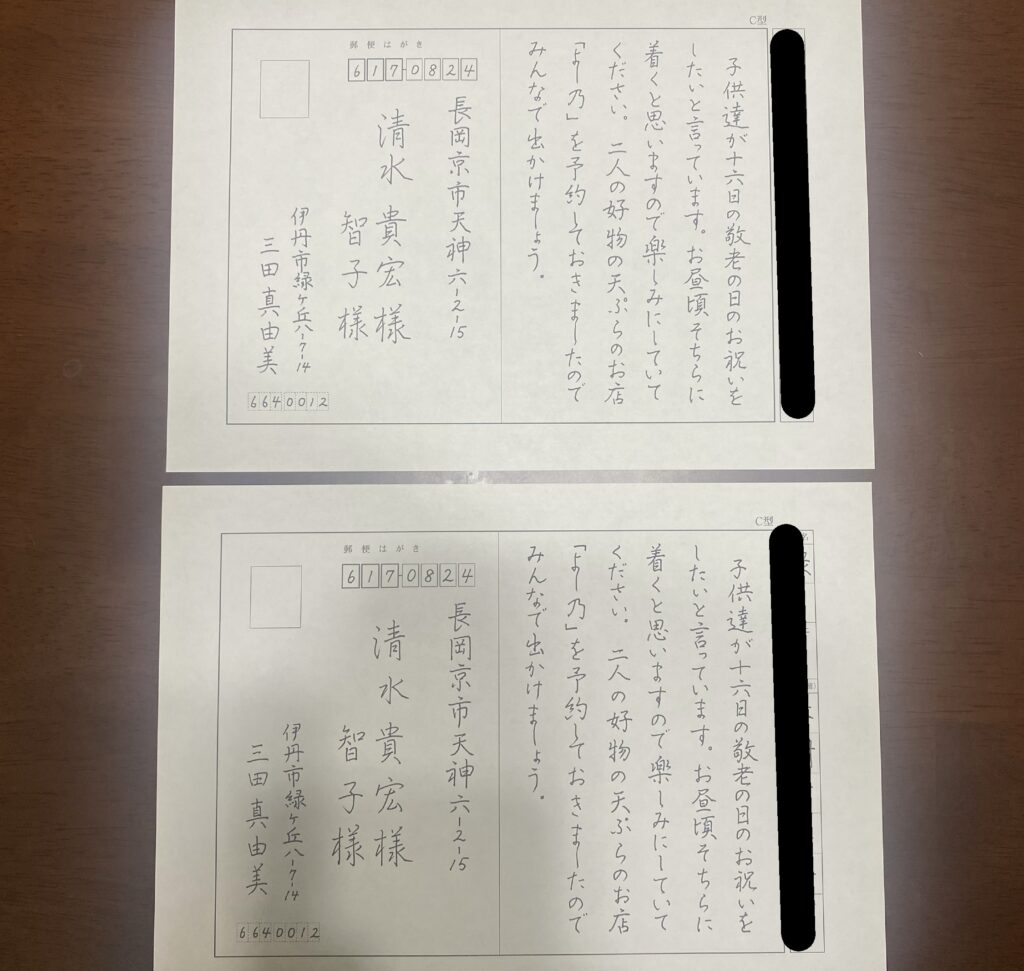 C型
子供達が十六日の敬老の日のお祝いを
したいと言っています。お昼頃そちらに
着くと思いますので楽しみにしていて
ください。二人の好物の天ぷらのお店
「よし乃」を予約しておきましたので
みんなで出かけましょう。
郵便はがき
617-0824
長岡京市天神六-2-15
清水 貴宏様
智子様
伊丹市緑ヶ丘八-7-14
三田真由美
6640012
C型
子供達が十六日の敬老の日のお祝いを
したいと言っています。お昼頃そちらに
着くと思いますので楽しみにしていて
ください。二人の好物の天ぷらのお店
「よし乃」を予約しておきましたので
みんなで出かけましょう。
郵便はがき
617-0824
長岡京市天神六-2-15
清水 貴宏様
智子様
伊丹市緑ヶ丘八-7-14
三田真由美
6640012